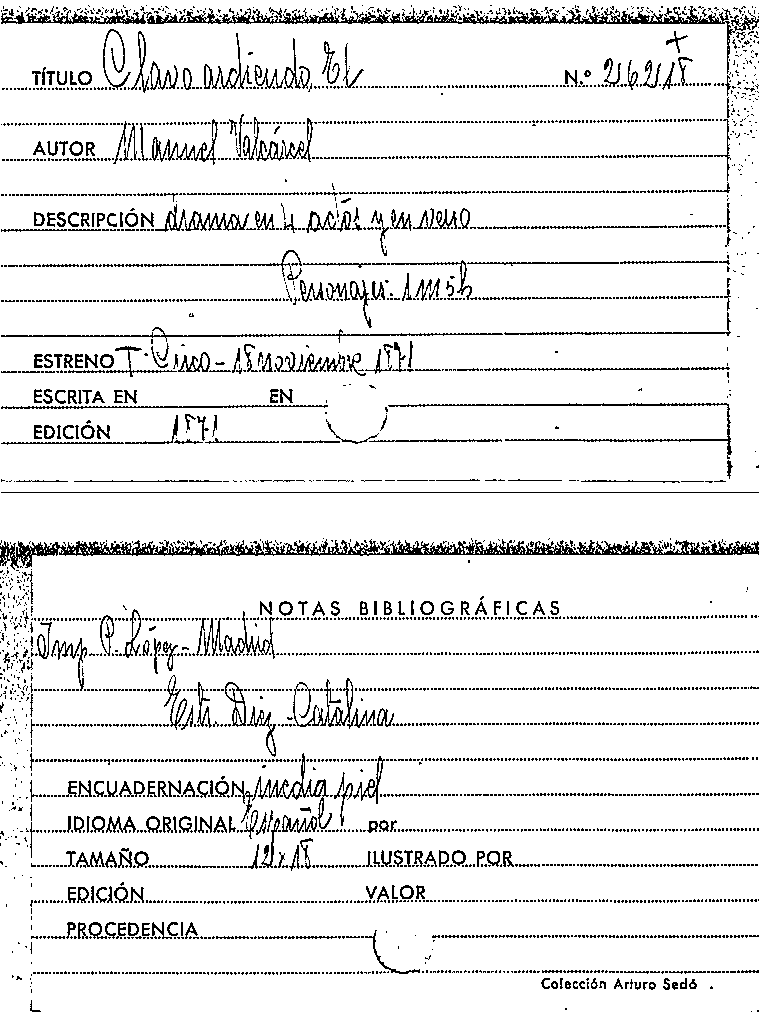 TÍTULO Clavo ardiendo El N.º 21621 18
AUTOR Manuel Valcárcel
DESCRIPCIÓN drama en 4 actos y en verso
Personajes: 1 m 5 h
ESTRENO T. Circo - 18 noviembre 1871
ESCRITA EN EN
EDICIÓN 1871
NOTAS BIBLIOGRÁFICAS
Imp P. López - Madrid
Estr. Diez - Catalina
ENCUADERNACIÓN media piel
IDIOMA ORIGINAL Español por
TAMAÑO 12 x 18 ILUSTRADO POR
EDICIÓN VALOR
PROCEDENCIA
Colección Arturo Sedó